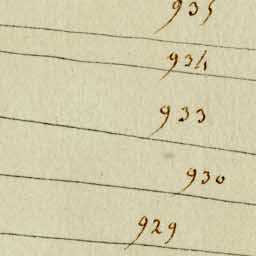 935
934
933
930
929